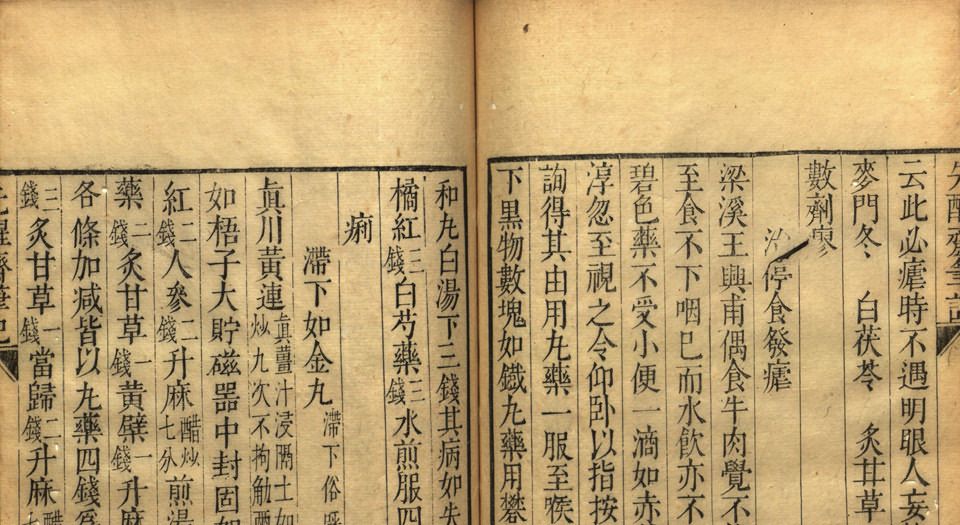 云此必瘧時不遇明眼人妄
麥門冬 白茯苓 炙甘草
數劑寥
停食發瘧
梁溪王興甫偶食牛肉覺不
至食不下咽已而水飲亦不
碧色藥不受小便一滴如赤
淳忽至視之令仰臥以指按
詢得其由用丸藥一服至喉
下黑物數塊如鐵丸藥用礬
和丸白湯下三錢其病如失
橘紅三錢白芍藥三錢水煎服四
痢
滯下如金丸滯下俗呼
眞川黃連眞薑汁浸隔土如炒九次不拘觔
如梧子大貯磁器中封固如
紅二錢人參二錢升麻醋炒七分煎湯
藥二錢炙甘草一錢黃檗一錢升麻
各條加減皆以丸藥四錢爲
三錢炙甘草一錢當歸二錢升麻